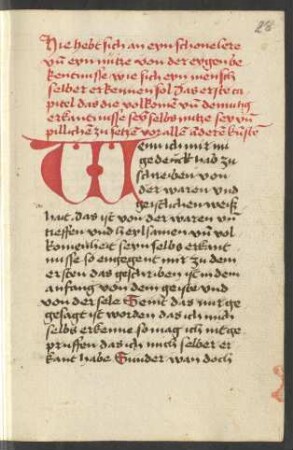 28
Hie hebt sich an eyn schone lere
vn̄ eyn nütze von der eygen be
kentnisse wie sich eyn mensch
selber erkennen sol Das erste ca
pitel das die volkomē vn̄ demutig
erkantnusse seyns selbs nutze sey vn̄
pillichen zu setzen vor allen anderen kunstē
Wenn ich mir nu
gedenck hab zu
schreiben von
der waren und
geistlichen weiß
hait das ist von der waren vn̄
tieffen und heylsamen vn̄ vol
komenheit seyns selbs erkant
nusse so engegent mir zu dem
ersten das geschriben ist in dem
anfang von dem geiste und
von der sele Seint das mir ge
gesagt ist worden das ich mich
selbs erkenne so mag ich nit ge
prüffen das ich mich selber er
kant habe Sunder wan doch